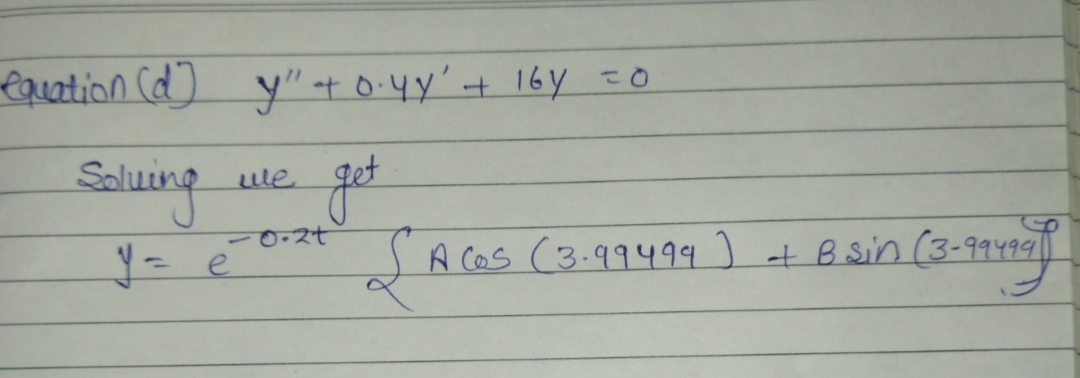 equation (d] y'' + 0.4y' + 16y = 0
Solving we get
y = e^{-0.2t} { A cos (3.99499) + B sin (3-99499)}